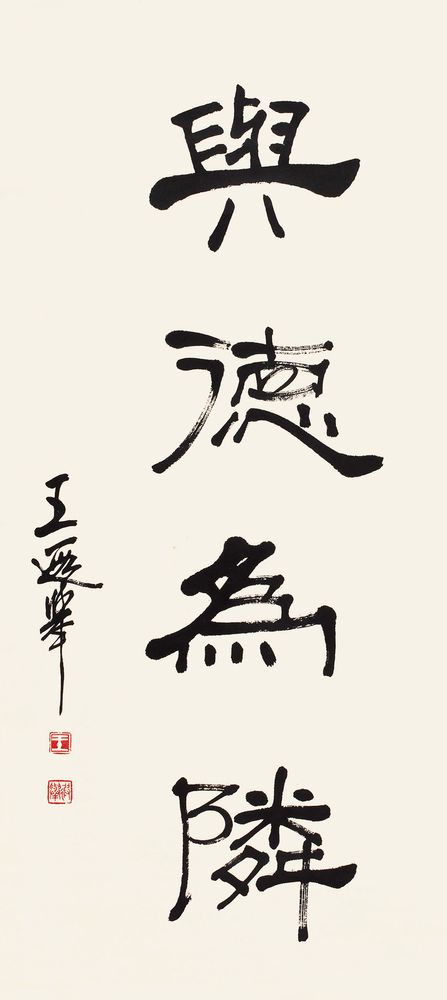 與德為隣
王遐舉